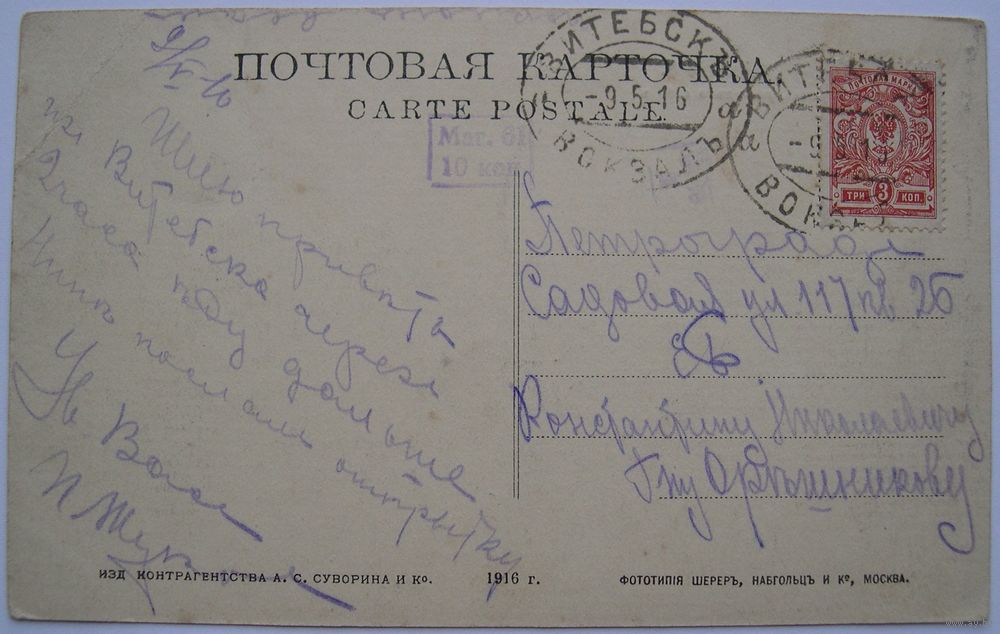 ПОЧТОВАЯ КАРТОЧКА.
CARTE POSTALE
ВИТЕБСКЪ
-9.5.16
ВОКЗАЛЪ
а
ВИТЕБСКЪ
ВОКЗ
а
ПОЧТОВАЯ МАРКА
3
ТРИ КОП.
Маг. 61
10 коп
Шлю привѣтъ
изъ Витебска через
2 часа ѣду дальше
послали открытку
Ув. Вас
Петроград
Садовая ул 117 кв 26
ЕВ
Константину Николаевичу
Гну Орѣшникову
ИЗД КОНТРАГЕНТСТВА А. С. СУВОРИНА И Ко.
1916 г.
ФОТОТИПІЯ ШЕРЕРЪ, НАБГОЛЬЦЪ И Ко, МОСКВА.